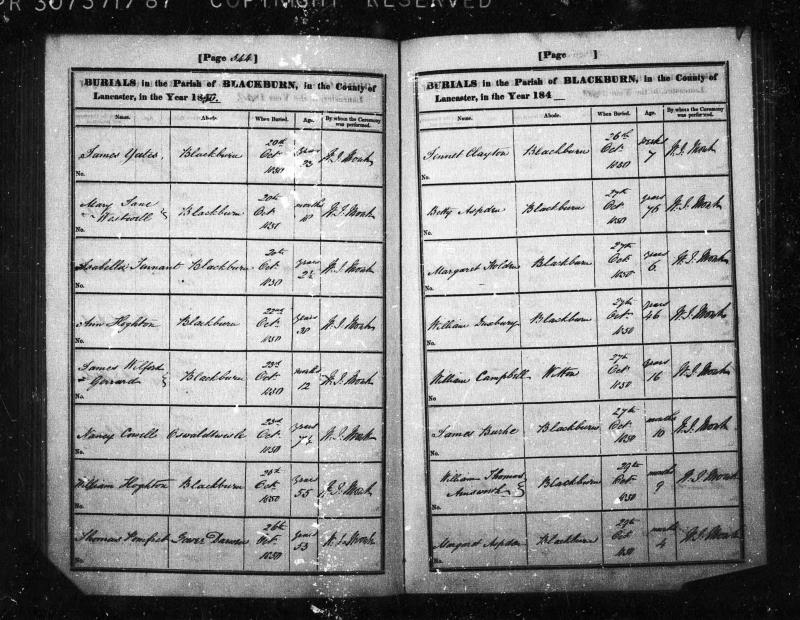 PR 3073/1/87 COPYRIGHT RESERVED
[Page 344]
BURIALS in the Parish of BLACKBURN, in the County of
Lancaster, in the Year 1850.
Name. Abode. When Buried. Age. By whom the Ceremony was performed.
James Yates, Blackburn 20th Oct 1850 years 33 W. J. Monk
No.
Mary Jane Westwell Blackburn 20th Oct 1850 months 10 W. J. Monk
No.
Isabella Tennant Blackburn 20th Oct 1850 years 2½ W. J. Monk
No.
Ann Hoghton Blackburn 22nd Oct 1850 years 30 W. J. Monk
No.
James Wilford Gerrard Blackburn 23rd Oct 1850 weeks 12 W. J. Monk
No.
Nancy Cowell Oswaldtwistle 23rd Oct 1850 years W. J. Monk
No.
William Hoghton Blackburn Oct 1850 years 55 W. J. Monk
No.
Thomas Pomfret Lower Darwen 26th Oct 1850 years 53 W. J. Monk
No.
[Page ]
BURIALS in the Parish of BLACKBURN, in the County of
Lancaster, in the Year 184
Name. Abode. When Buried. Age. By whom the Ceremony was performed.
Jennet Clayton Blackburn 26th Oct 1850 weeks 7 W. J. Monk
No.
Betty Aspden Blackburn 27th Oct 1850 years 76 W. J. Monk
No.
Margaret Holden Blackburn 27th Oct 1850 years 6 W. J. Monk
No.
William Duxbury Blackburn 27th Oct 1850 years 46 W. J. Monk
No.
William Campbell Witton 27th Oct 1850 years 16 W. J. Monk
No.
James Burke Blackburn 27th Oct 1850 months 10 W. J. Monk
No.
William Thomas Ainsworth Blackburn 29th Oct 1850 months 9 W. J. Monk
No.
Margaret Aspden Blackburn 29th Oct 1850 months 4 W. J. Monk
No.